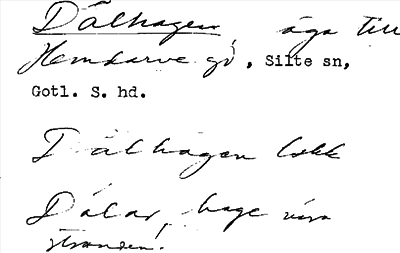 Dålhagen, äga till
Hemdarve gd, Silte sn,
Gotl. S. hd.
Dålhagen lokk
Dålar, hage vera
stranden!